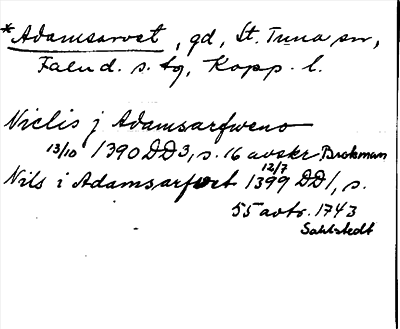 *Adamsarvet, gd, St. Tuna sn,
Falu d. s. tg, Kopp. l.
Niclis j Adamsarfweno
13/10 1390 DD3, s. 16 avskr Brokman
Nils i Adamsarfvet 12/7 1399 DD1, s.
55 avtr. 1743
Sahlstedt